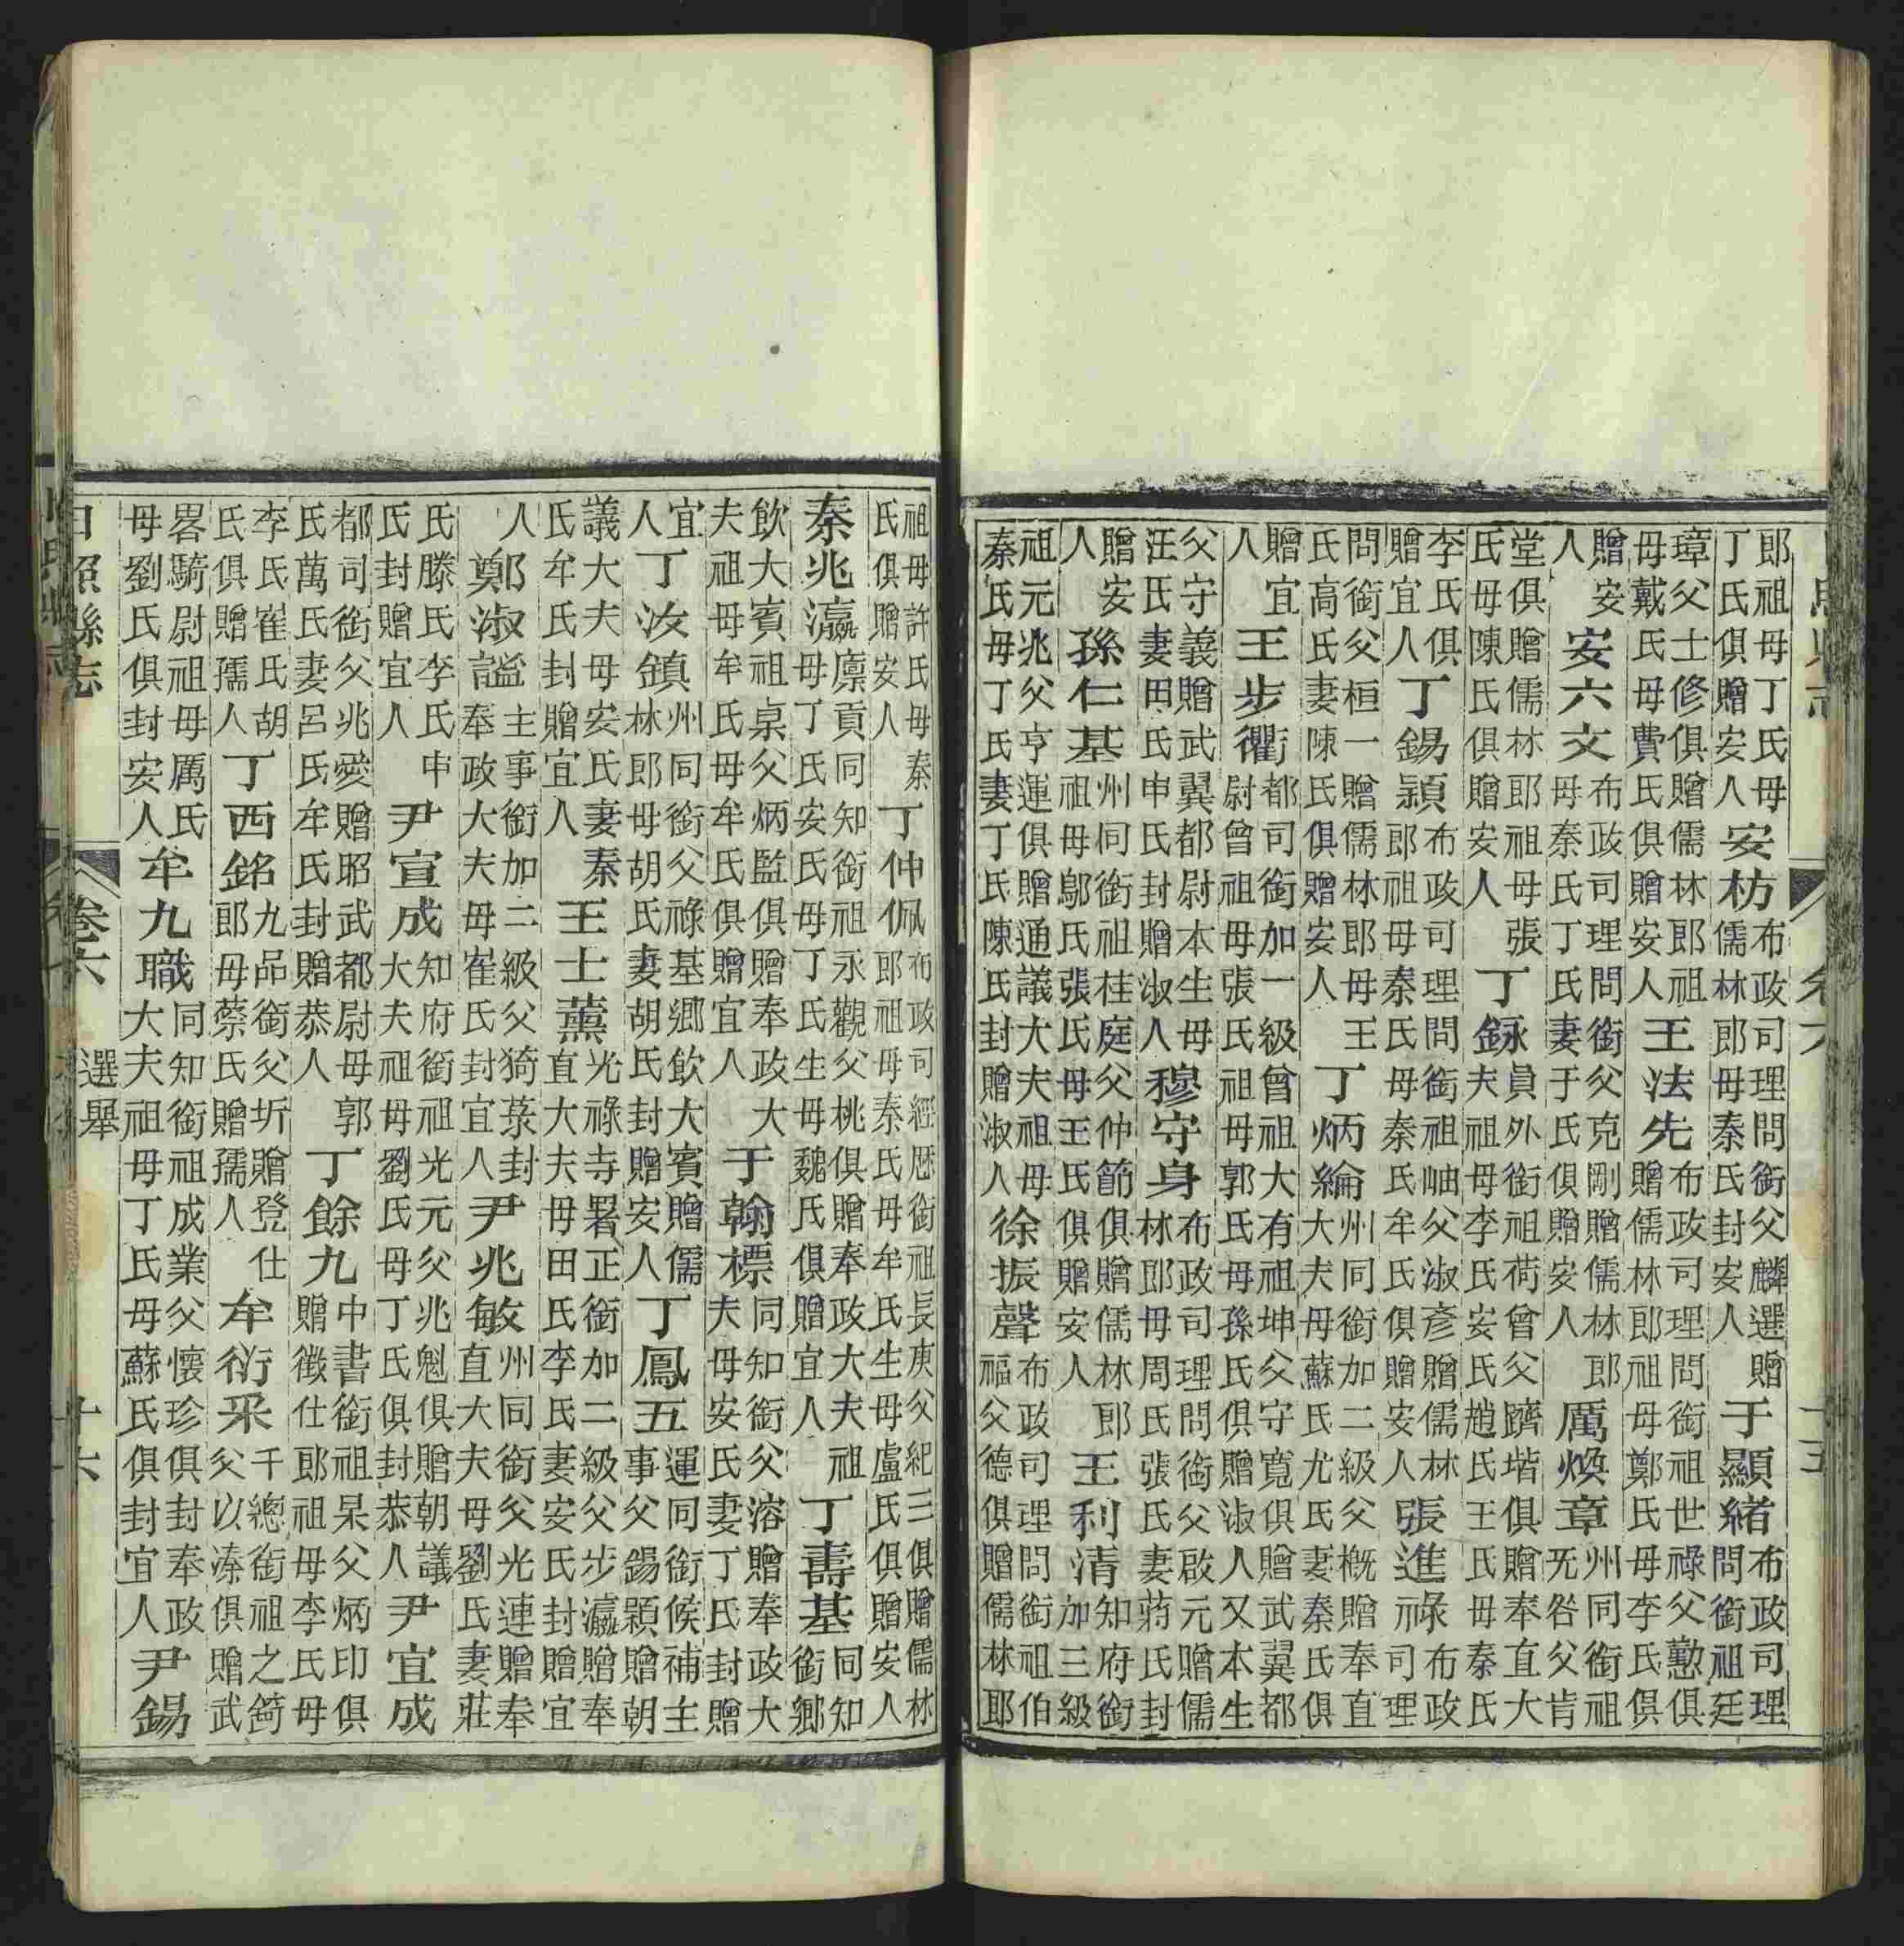 郎祖母丁氏母
丁氏俱贈安人
安枋
布政司理問銜父麟選贈
儒林郎母秦氏封安人
于顯緒
布政司理
問銜祖廷
璋父士修俱贈儒林郎祖
母戴氏母費氏俱贈安人
王法先
布政司理問銜祖世祿父懃俱
贈儒林郎祖母鄭氏母李氏俱
贈安
人
安六文
布政司理問銜父克剛贈儒林郎
母秦氏丁氏妻于氏俱贈安人
厲煥章
州同銜祖
旡咎父肯
堂俱贈儒林郎祖母張
氏母陳氏俱贈安人
丁
員外銜祖荷曾父躋堦俱贈奉直大
夫祖母李氏安氏趙氏王氏母秦氏
李氏俱
贈宜人
丁錫頴
布政司理問銜祖岫父淑彥贈儒林
郎祖母秦氏母秦氏牟氏俱贈安人
張進祿
布政
司理
問銜父桓一贈儒林郎母王
氏高氏妻陳氏俱贈安人
丁炳綸
州同銜加二級父概贈奉直
大夫母蘇氏尤氏妻秦氏俱
贈宜
人
王步衢
都司銜加一級曾祖大有祖坤父守寬俱贈武翼都
尉曾祖母張氏祖母郭氏母孫氏俱贈淑人又本生
父守義贈武翼都尉本生母
汪氏妻田氏申氏封贈淑人
穆守身
布政司理問銜父啟元贈儒
林郎母周氏張氏妻蔣氏封
贈安
人
孫仁基
州同銜祖桂庭父仲節俱贈儒林郎
祖母鄔氏張氏母王氏俱贈安人
王利清
知府銜
加三級
祖元兆父亨運俱贈通議大夫祖母
秦氏母丁氏妻丁氏陳氏封贈淑人
徐振聲
布政司理問銜祖伯
福父德俱贈儒林郎
祖母許氏母秦
氏俱贈安人
丁仲佩
布政司經歷銜祖長庚父紀三俱贈儒林
郎祖母秦氏母牟氏生母盧氏俱贈安人
秦兆瀛
廩貢同知銜祖永觀父桃俱贈奉政大夫祖
母丁氏安氏母丁氏生母魏氏俱贈宜人
丁壽基
同知
銜鄉
飲大賓祖枲父炳監俱贈奉政大
夫祖母牟氏母牟氏俱贈宜人
于翰標
同知銜父溶贈奉政大
夫母安氏妻丁氏封贈
宜
人
丁汝鎮
州同銜父祿基鄉飲大賓贈儒
林郎母胡氏妻胡氏封贈安人
丁鳳五
運同銜候補主
事父錫頴贈朝
議大夫母安氏妻秦
氏牟氏封贈宜人
王士薰
光祿寺署正銜加二級父步瀛贈奉
直大夫母田氏李氏妻安氏封贈宜
人
鄭淑謐
主事銜加二級父猗菉封
奉政大夫母崔氏封宜人
尹兆敏
州同銜父光連贈奉
直大夫母劉氏妻莊
氏滕氏李氏申
氏封贈宜人
尹宣成
知府銜祖光元父兆魁俱贈朝議
大夫祖母劉氏母丁氏俱封恭人
尹宜成
都司銜父兆愛贈昭武都尉母郭
氏萬氏妻呂氏牟氏封贈恭人
丁餘九
中書銜祖杲父炳印俱
贈徵仕郎祖母李氏母
李氏崔氏胡
氏俱贈孺人
丁西銘
九品銜父圻贈登仕
郎母蔡氏贈孺人
牟衍采
千總銜祖之
父以溱俱贈武
畧騎尉祖母厲氏
母劉氏俱封安人
牟九職
同知銜祖成業父懷珍俱封奉政
大夫祖母丁氏母蘇氏俱封宜人
尹錫
日照縣志
卷六
選舉
十六